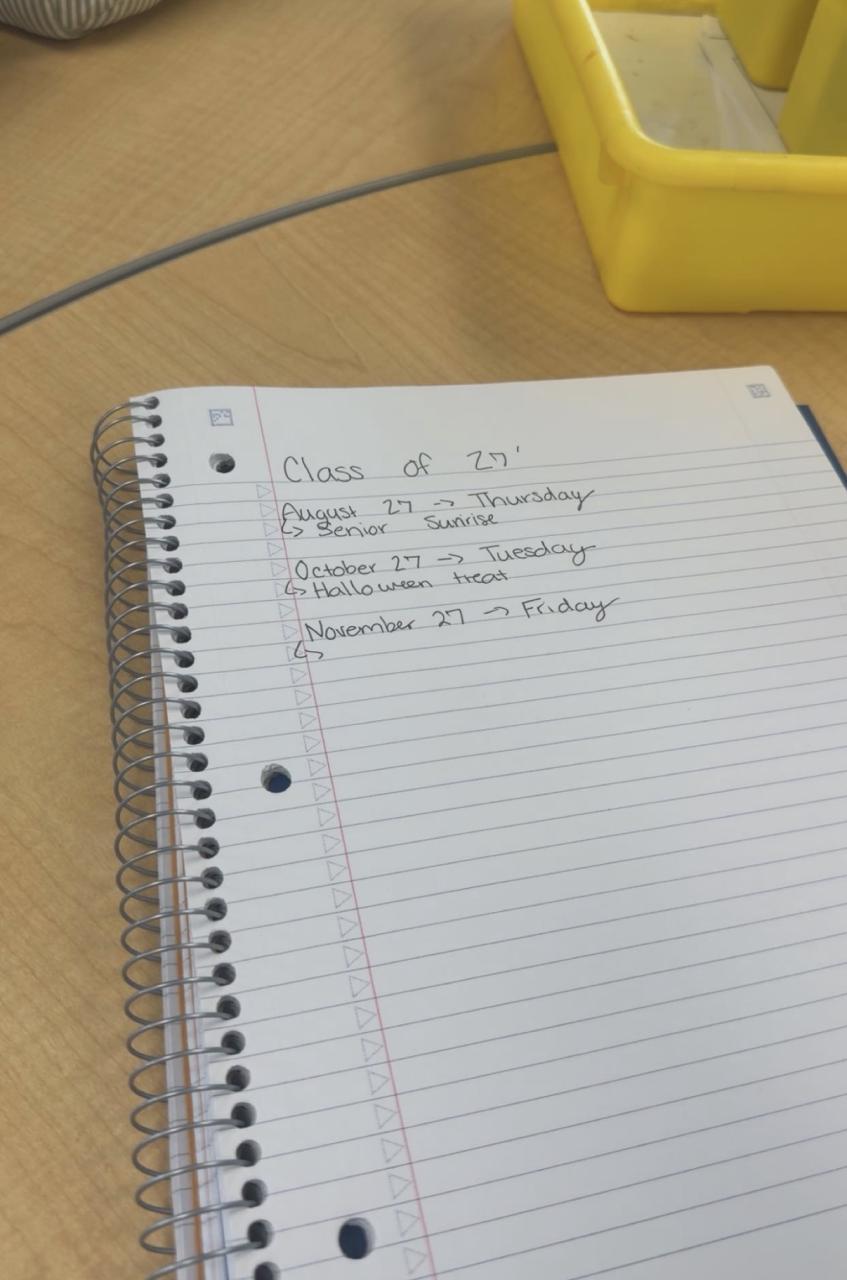 Class of 27'
August 27 → Thursday
↳ Senior Sunrise
October 27 → Tuesday
↳ Halloween treat
November 27 → Friday
↳